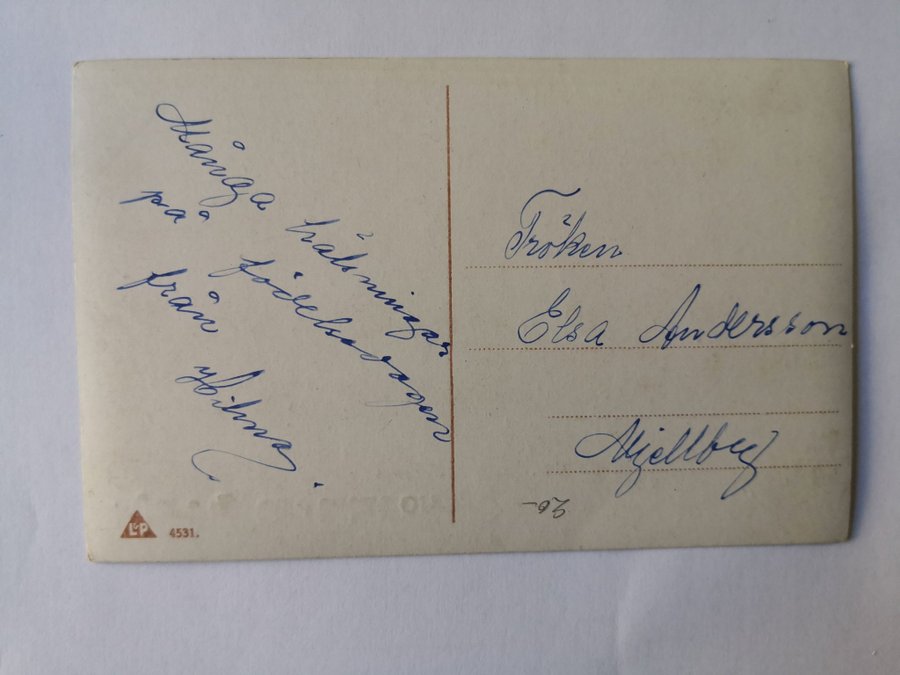 Många hälsningar
på födelsedagen
från Hilma.
Fröken
Elsa Andersson
Mjellby
20-
L&P
4531.